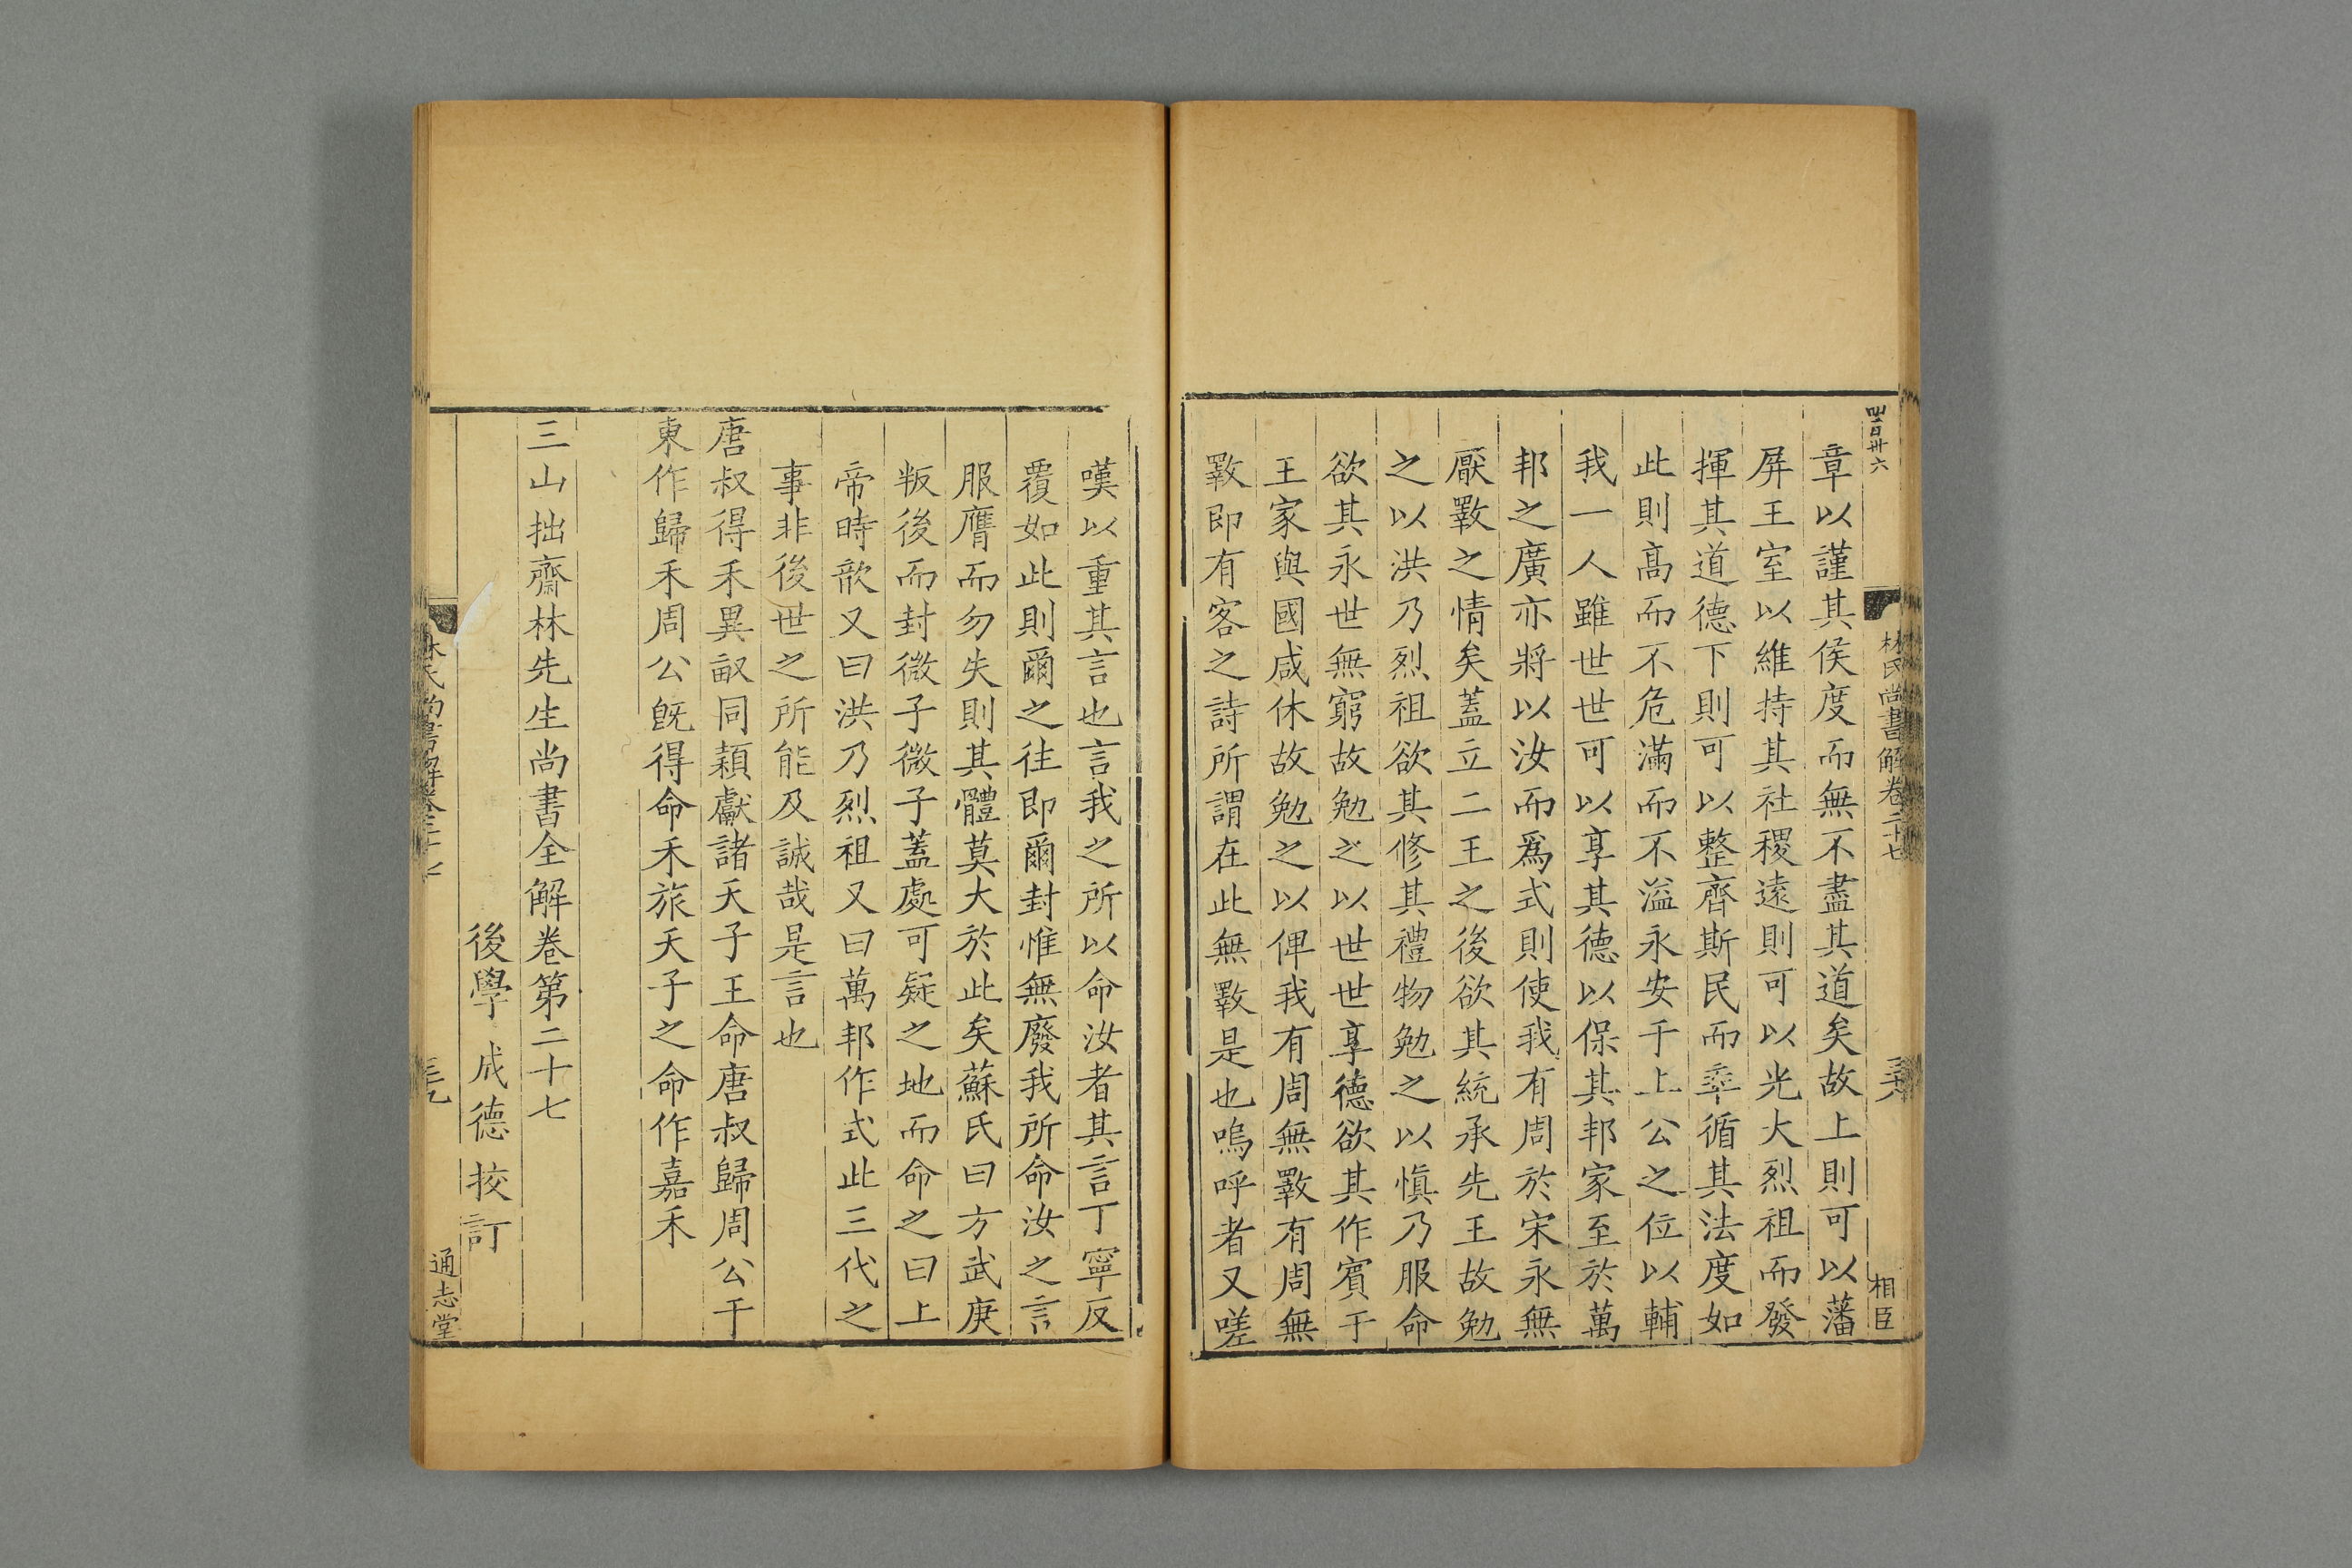 林氏尚書解卷二十七
相臣
章以謹其侯度而無不盡其道矣故上則可以藩
屏王室以維持其社稷遠則可以光大烈祖而發
揮其道德下則可以整齊斯民而率循其法度如
此則髙而不危滿而不溢永安于上公之位以輔
我一人雖世世可以享其德以保其邦家至於萬
邦之廣亦將以汝而爲式則使我有周於宋永無
厭斁之情矣蓋立二王之後欲其統承先王故勉
之以洪乃烈祖欲其修其禮物勉之以愼乃服命
欲其永世無窮故勉之以世世享德欲其作賓于
王家與國咸休故勉之以俾我有周無斁有周無
斁即有客之詩所謂在此無斁是也嗚呼者又嗟
嘆以重其言也言我之所以命汝者其言丁寧反
覆如此則爾之往即爾封惟無廢我所命汝之言
服膺而勿失則其體莫大於此矣蘇氏曰方武庚
叛後而封微子微子蓋處可疑之地而命之曰上
帝時歆又曰洪乃烈祖又曰萬邦作式此三代之
事非後世之所能及誠哉是言也
唐叔得禾異畝同穎獻諸天子王命唐叔歸周公于
東作歸禾周公旣得命禾旅天子之命作嘉禾
三山拙齋林先生尚書全解卷第二十七
後學成德挍訂
林氏尚書解卷二十七
通志堂